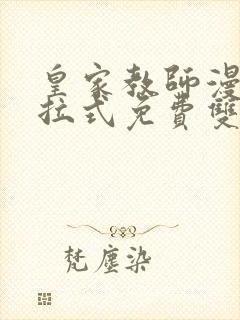 皇家教師漫
拉式免費雙
梵塵染